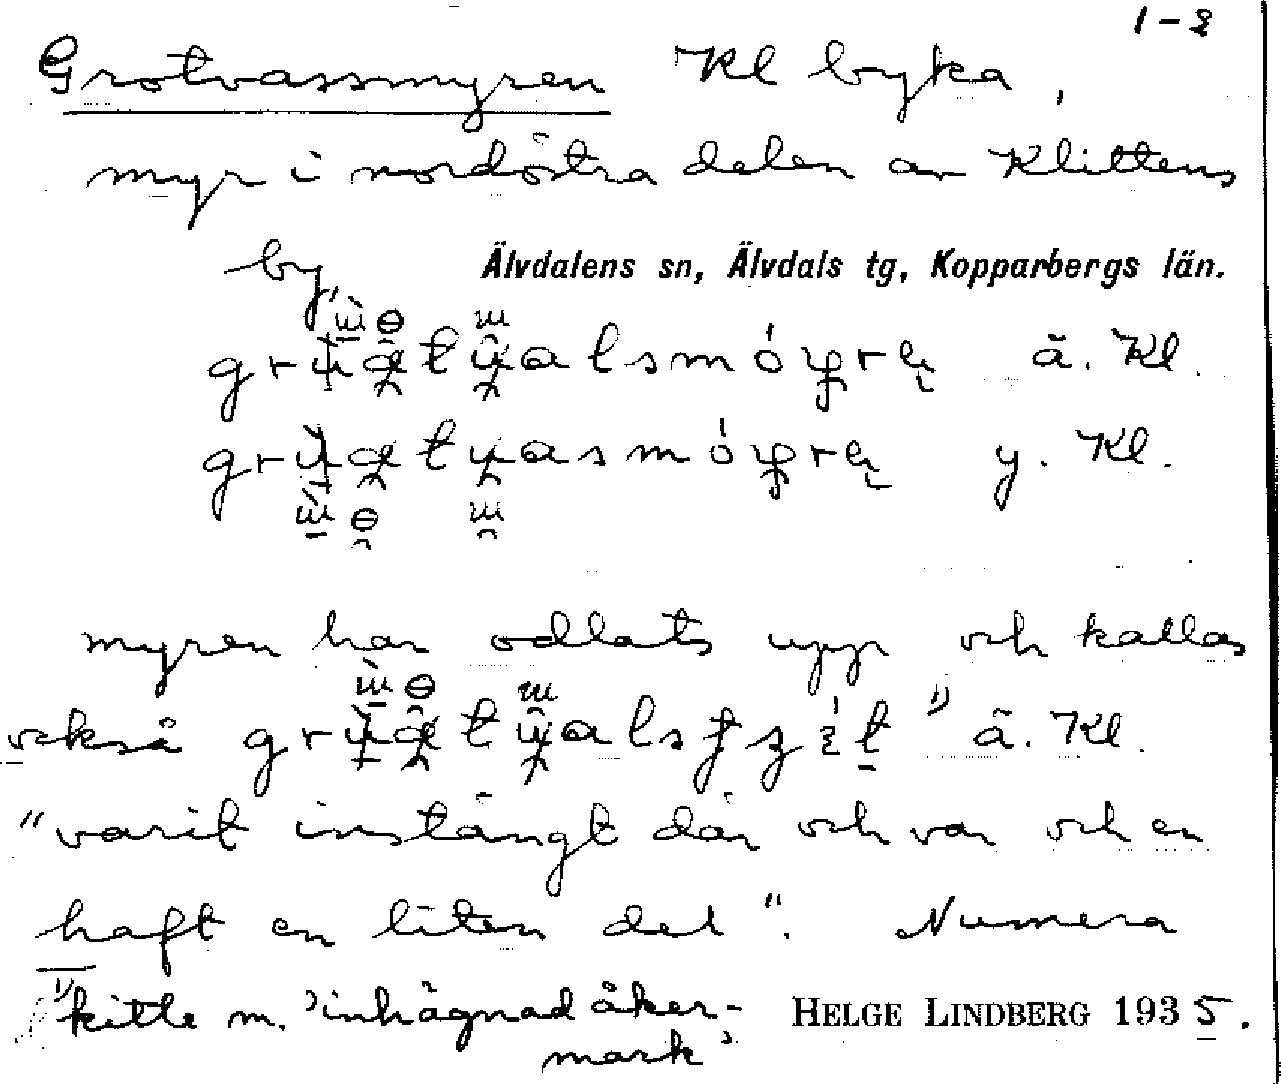 1-2
Grotvassmyren Kl byka,
myr i nordöstra delen av Klittens
by,
Älvdalens sn, Älvdals tg, Kopparbergs län.
ä. Kl.
y. Kl.
myren har odlats upp och kallas
också ¹⁾ ä. Kl.
"varit instängt där och var och en
haft en liten del". Numera
¹⁾kitte m. 'inhägnad åker-
mark'
HELGE LINDBERG 1935.